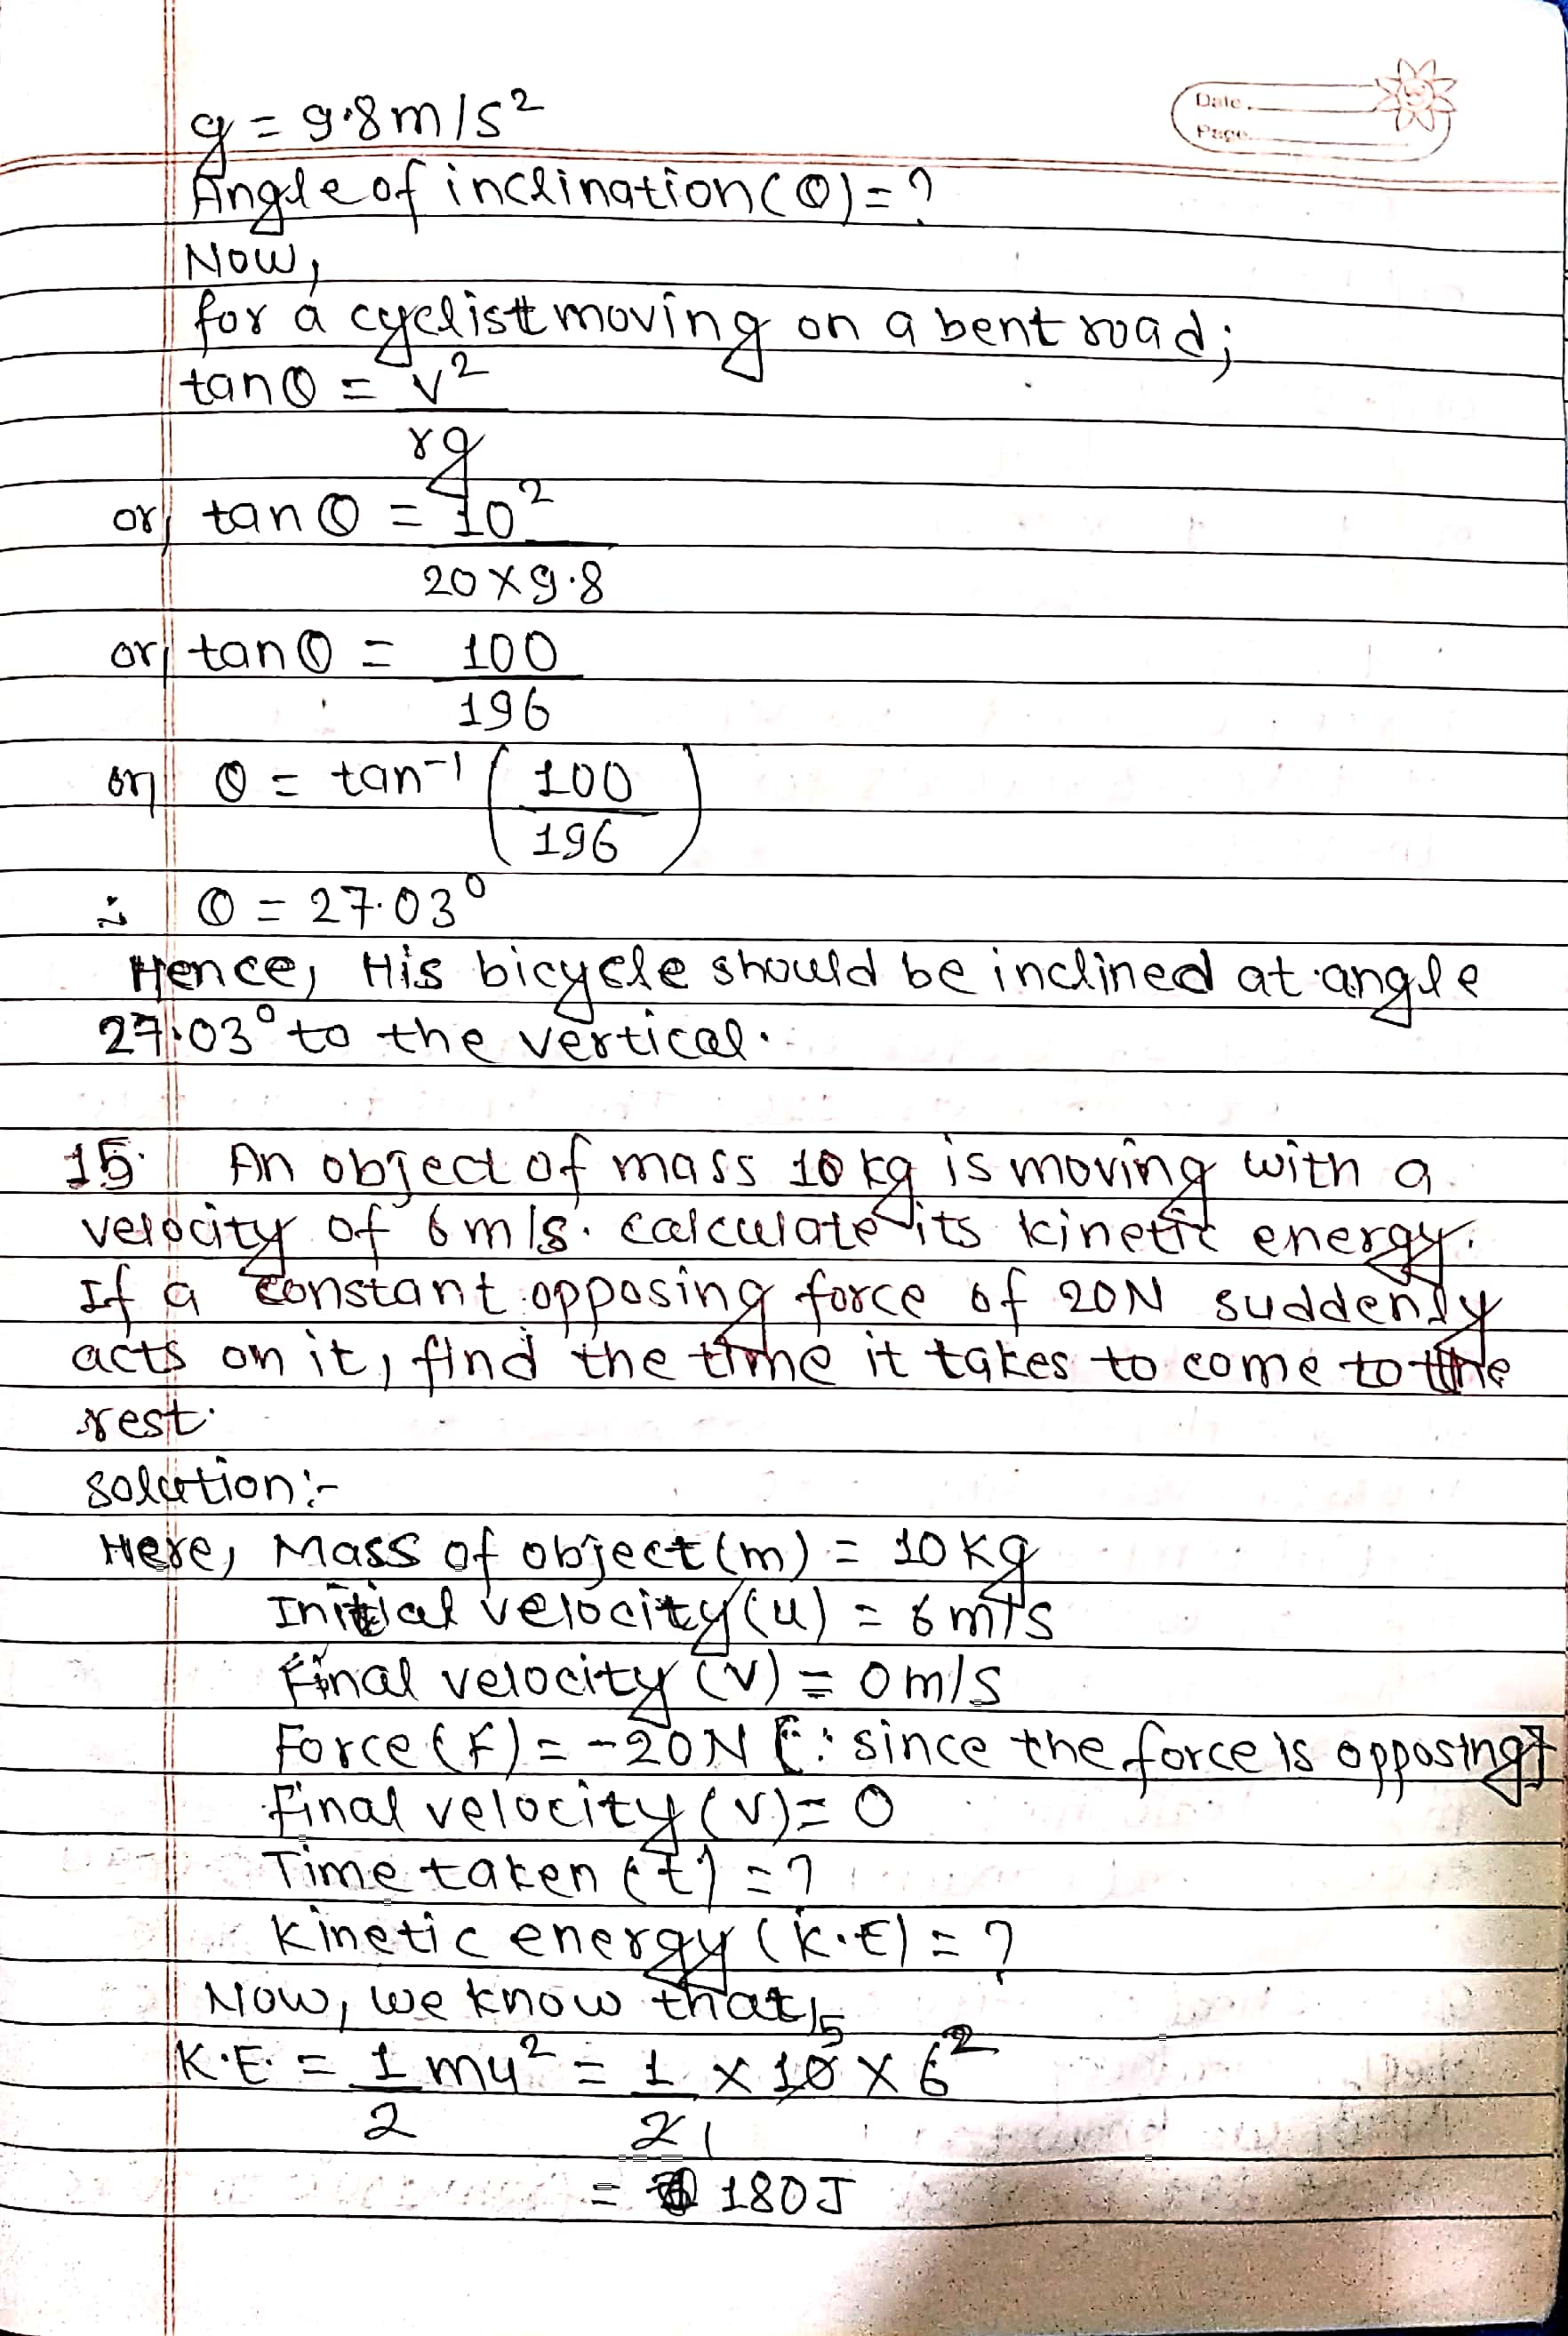 Date.
Page.
g = 9.8 m/s²
Angle of inclination (θ) = ?
Now,
for a cyclist moving on a bent road;
tanθ = v²
rg
or, tanθ = 10²
20×9.8
or, tanθ = 100
196
or, θ = tan⁻¹ (100
196)
∴ θ = 27.03°
Hence, His bicycle should be inclined at angle
27.03° to the vertical.
15. An object of mass 10 kg is moving with a
velocity of 6 m/s. calculate its kinetic energy.
If a constant opposing force of 20N suddenly
acts on it, find the time it takes to come to the
rest.
solution:-
Here, Mass of object (m) = 10 kg
Initial velocity (u) = 6 m/s
Final velocity (v) = 0 m/s
Force (F) = -20N [∵ since the force is opposing]
final velocity (v) = 0
Time taken (t) = ?
Kinetic energy (K.E) = ?
Now, we know that,
K.E. = 1 mu² = 1 × 10 5 × 6²
2 2 1
= 180J